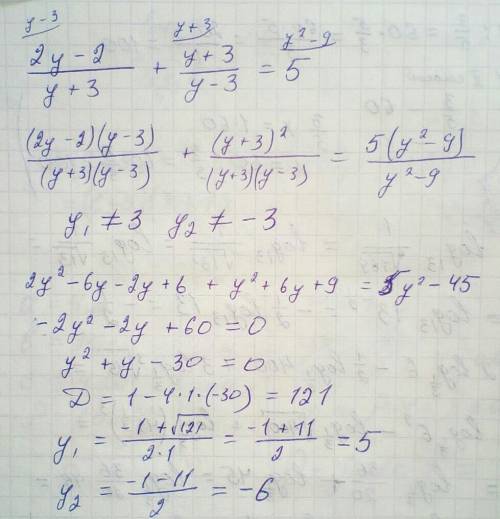 y-3 y+3 y²-9
(2y-2)/(y+3) + (y+3)/(y-3) = 5
((2y-2)(y-3))/((y+3)(y-3)) + (y+3)²/((y+3)(y-3)) = 5(y²-9)/(y²-9)
y₁ ≠ 3 y₂ ≠ -3
2y²-6y-2y+6 + y²+6y+9 = 5y²-45
-2y²-2y+60=0
y²+y-30=0
D = 1-4·1·(-30) = 121
y₁ = (-1+√121)/(2·1) = (-1+11)/2 = 5
y₂ = (-1-11)/2 = -6